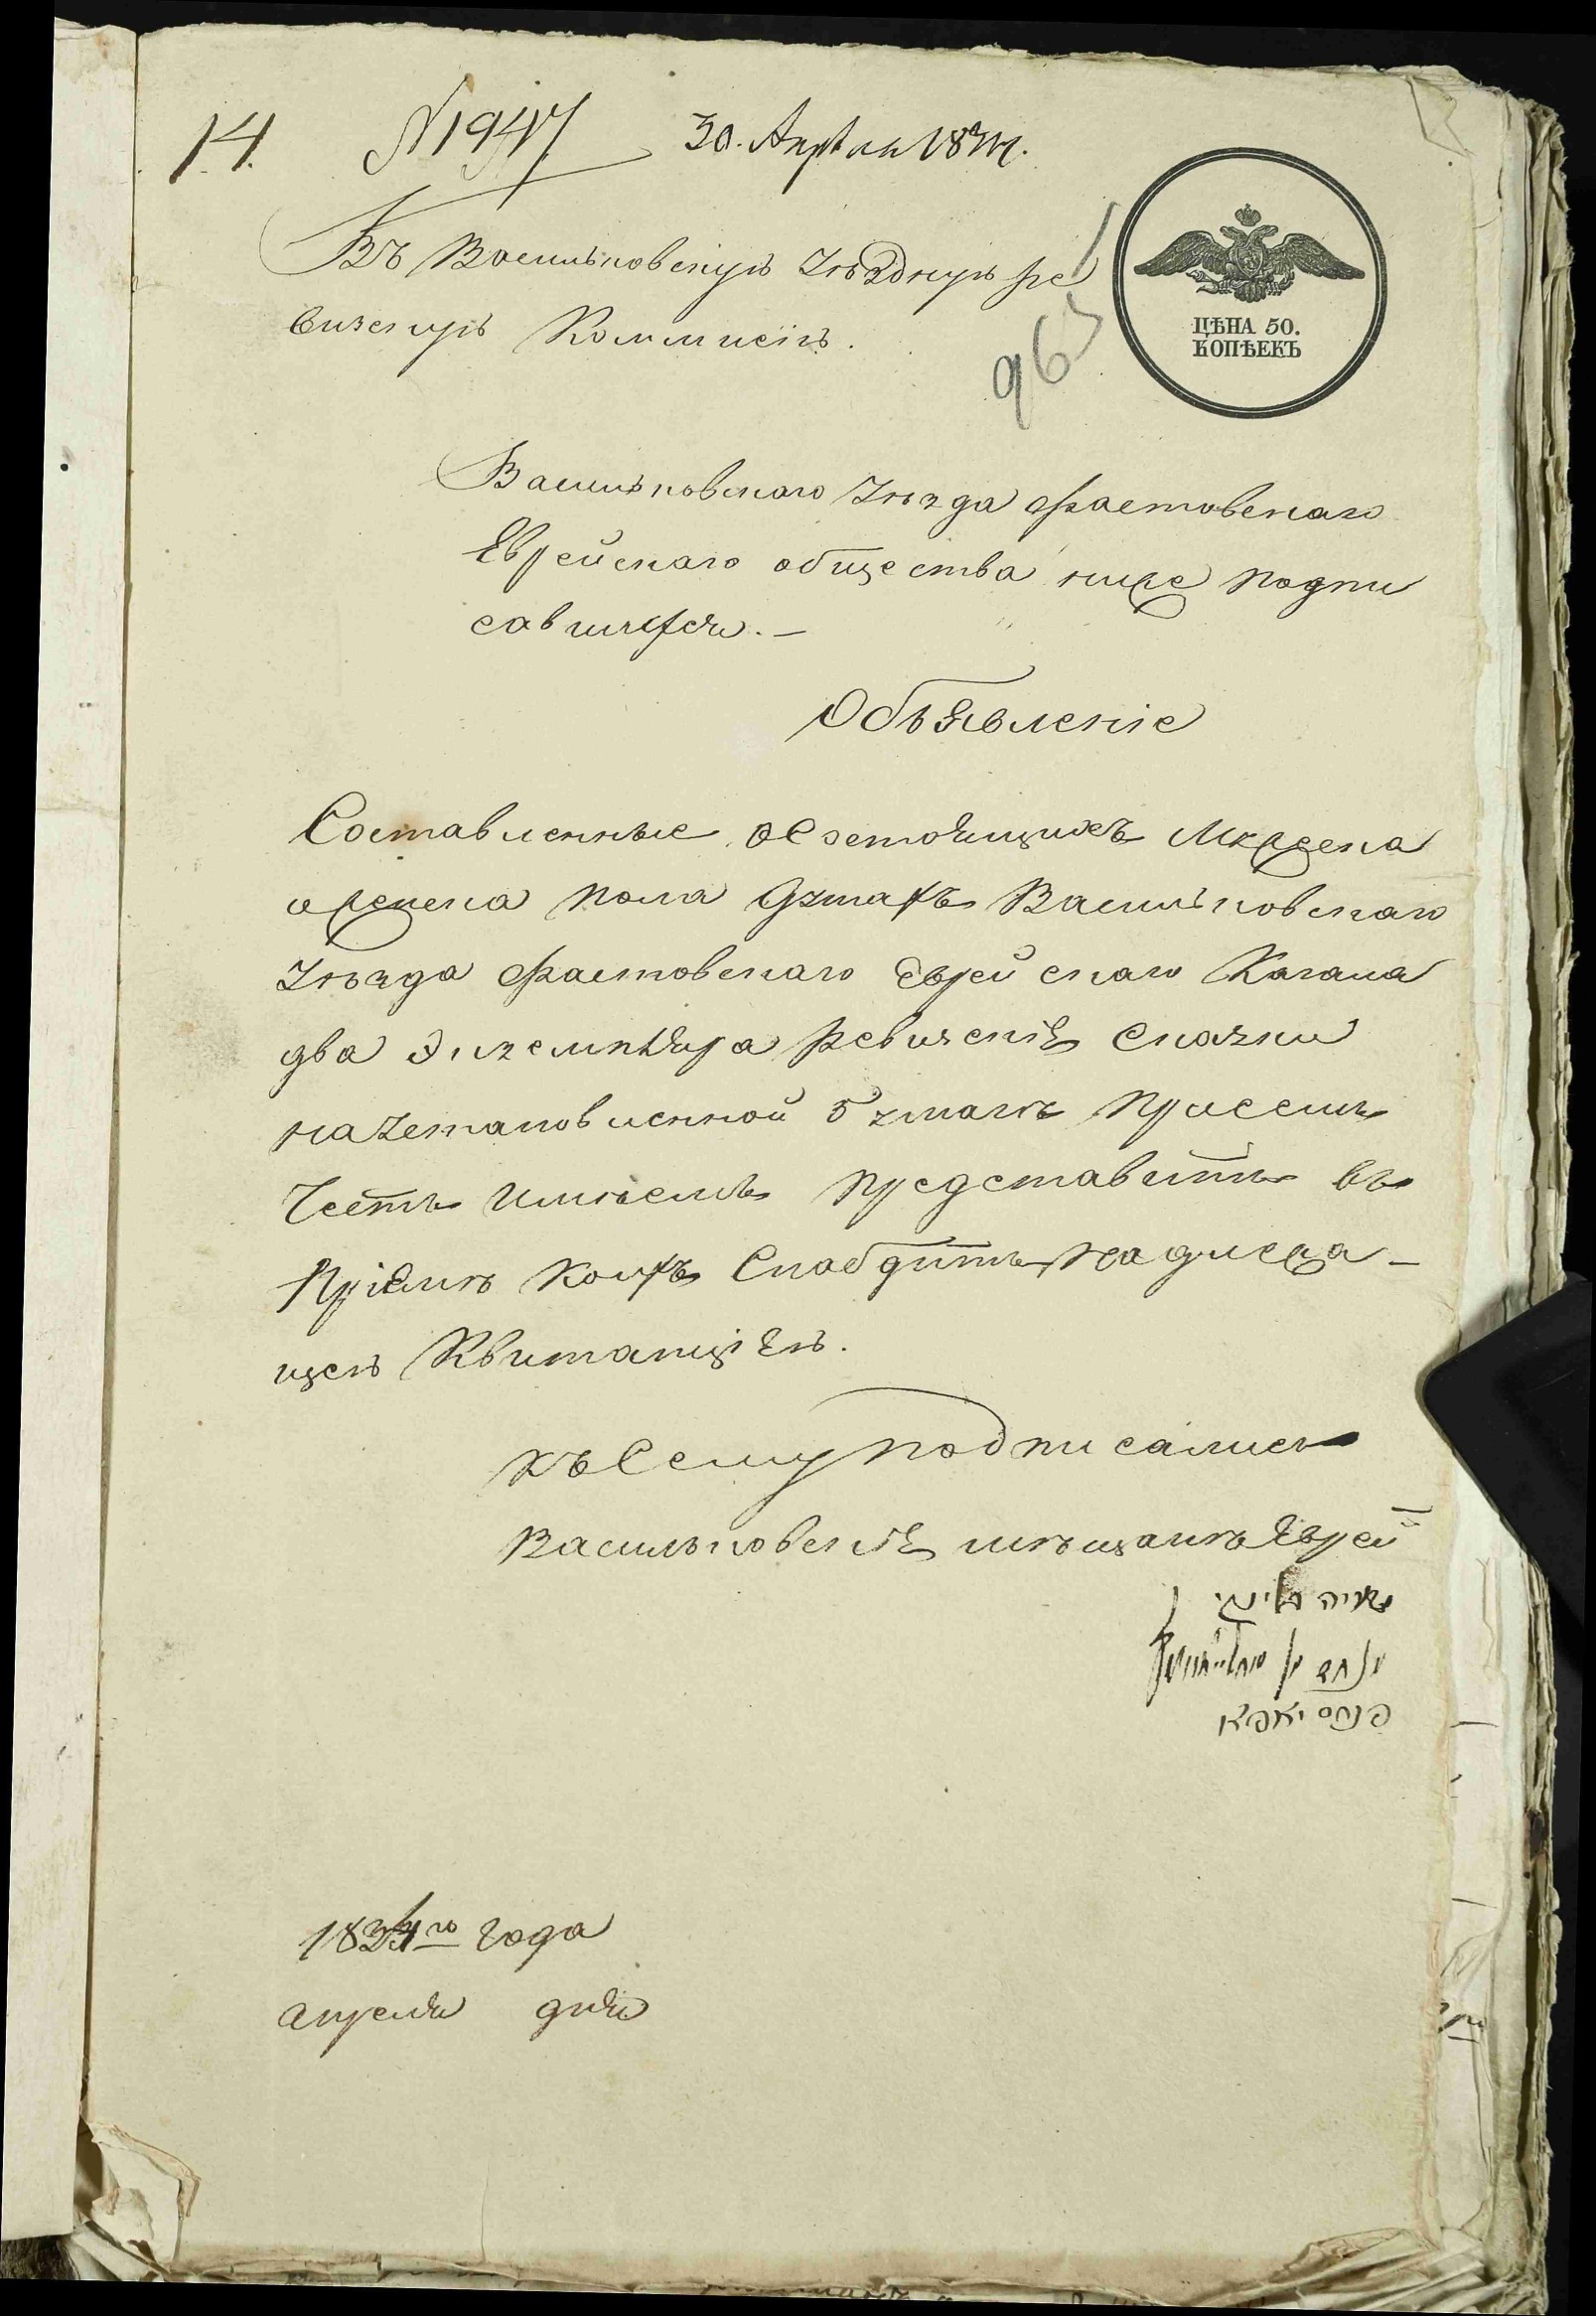 14. N 1947 30. Апреля 1834.
Въ Васильковскую Уѣздную ре
визскую Коммисію.
965
ЦѢНА 50.
КОПѢЕКЪ
Васильковскаго Уѣзда Фастовскаго
Еврейскаго общества ниже подпи
савшихся.—
Объявленіе
Составленные о состоящихъ мужеска
и женска пола душахъ Васильковскаго
Уѣзда Фастовскаго Еврейскаго Кагала
два экземпляра Ревизскія Сказки
на установленной бумагѣ при семъ
Честь имѣемъ представить въ
Пріемѣ коихъ Снабдить надлежа-
щею Квитанціею.
Къ Сему подписались
Васильковскія мѣщанѣ Евреи
פנחס יאפא
1834го года
апреля дня